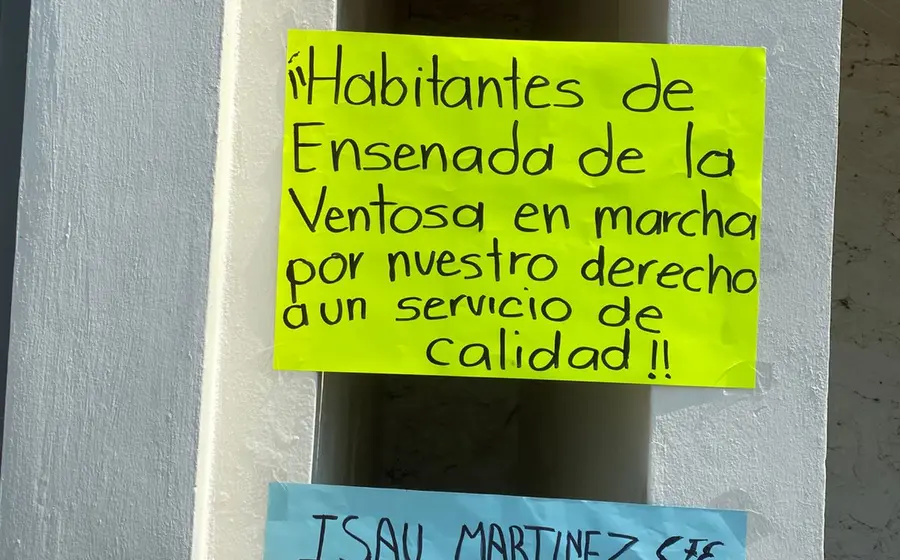 ¡¡Habitantes de
Ensenada de la
Ventosa en marcha
por nuestro derecho
a un servicio de
calidad!!
ISAU MARTINEZ CFE